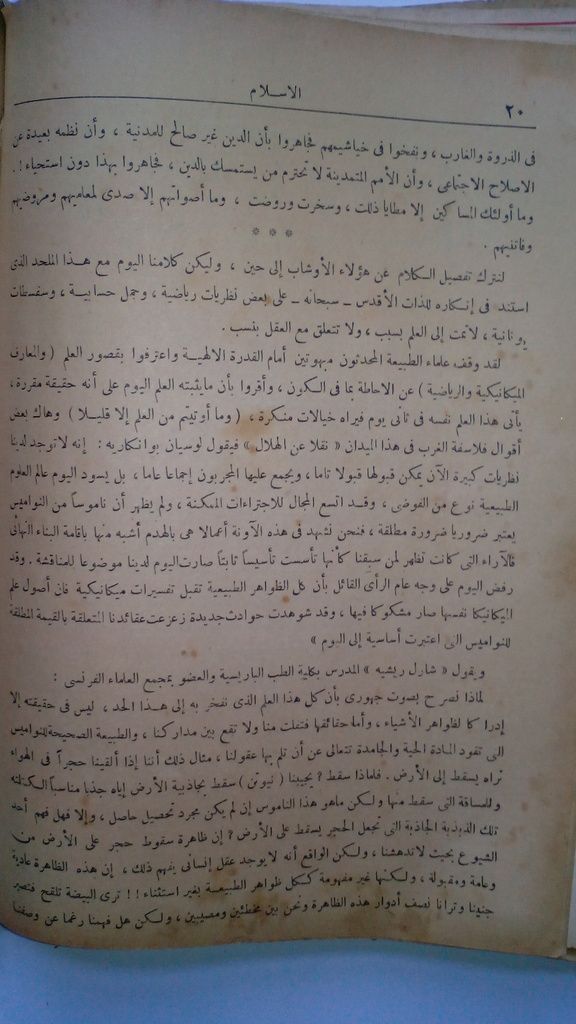 الاسلام
٢٠
فى الذروة والغارب ، ونفخوا فى خياشيمهم فجاهروا بأن الدين غير صالح للمدنية ، وأن نظمه بعيدة عن
الاصلاح الاجتماعى ، وأن الأمم المتمدينة لا تحترم من يستمسك بالدين ، فجاهروا بهذا دون استحياء ! .
وما أولئك المساكين إلا مطايا ذللت ، وسخرت وروضت ، وما أصواتهم إلا صدى لمعاميهم ومروضيهم
وفاتنيهم .
* * *
لنترك تفصيل الكلام عن هؤلاء الأوشاب إلى حين ، وليكن كلامنا اليوم مع هذا الملحد الذى
استند فى إنكاره للذات الأقدس ــ سبحانه ــ على بعض نظريات رياضية ، وجمل حسابية ، وسفسطات
يونانية ، لا تمت إلى العلم بسبب ، ولا تتعلق مع العقل بنسب .
لقد وقف علماء الطبيعة المحدثون مبهوتين أمام القدرة الالهية واعترفوا بقصور العلم ( والمعارف
الميكانيكية والرياضية ) عن الاحاطة بما فى الكون ، وأقروا بأن مايثبته العلم اليوم على أنه حقيقة مقررة ،
يأتى هذا العلم نفسه فى ثانى يوم فيراه خيالات منكرة ، ( وما أوتيتم من العلم إلا قليلا ) وهاك بعض
أقوال فلاسفة الغرب فى هذا الميدان « نقلا عن الهلال » فيقول لوسيان بوانكاريه : إنه لاتوجد لدينا
نظريات كبيرة الآن يمكن قبولها قبولا تاما ، ويجمع عليها المجربون إجماعا عاما ، بل يسود اليوم عالم العلوم
الطبيعية نوع من الفوضى ، وقد اتسع المجال للاجتراءات الممكنة ، ولم يظهر أن ناموساً من النواميس
يعتبر ضروريا ضرورة مطلقة ، فنحن نشهد فى هذه الآونة أعمالا هى بالهدم أشبه منها باقامة البناء النهائى
فالآراء التى كانت تظهر لمن سبقنا كأنها تأسست تأسيساً ثابتاً صارت اليوم لدينا موضوعا للمناقشة . وقد
رفض اليوم على وجه عام الرأى القائل بأن كل الظواهر الطبيعية تقبل تفسيرات ميكانيكية فان أصول علم
الميكانيكا نفسها صار مشكوكا فيها ، وقد شوهدت حوادث جديدة زعزعت عقائدنا المتعلقة بالقيمة المطلقة
للنواميس التى اعتبرت أساسية إلى اليوم »
ويقول « شارل ريشيه » المدرس بكلية الطب الباريسية والعضو بمجمع العلماء الفرنسى :
لماذا نصرح بصوت جهورى بأن كل هذا العلم الذى نفخر به إلى هذا الحد ، ليس فى حقيقته إلا
إدراكا لظواهر الأشياء ، وأما حقائقها فتفلت منا ولا تقع بين مداركنا ، والطبيعة الصحيحة للنواميس
التى تقود المادة الحية والجامدة تتعالى عن أن تلم بها عقولنا ، مثال ذلك أننا إذا ألقينا حجراً فى الهواء
تراه يسقط إلى الأرض . فلماذا سقط ؟ يجيبنا ( نيوتن ) سقط بجاذبية الأرض إياه جذبا مناسبا لكتلته
وللمسافة التى سقط منها ولكن ماهو هذا الناموس إن لم يكن مجرد تحصيل حاصل ، وإلا فهل فهم أحد
تلك الذبذبة الجاذبة التى تجعل الحجر يسقط على الأرض ؟ إن ظاهرة سقوط حجر على الأرض من
الشيوع بحيث لاتدهشنا ، ولكن الواقع أنه لا يوجد عقل إنسانى يفهم ذلك ، إن هذه الظاهرة عادية
وعامة ومقبولة ، ولكنها غير مفهومة ككل ظواهر الطبيعة بغير استثناء ! ! ترى البيضة تلقح فتصير
جنينا وترانا نصف أدوار هذه الظاهرة ونحن بين مخطئين ومصيبين ، ولكن هل فهمنا رغما عن وصفنا